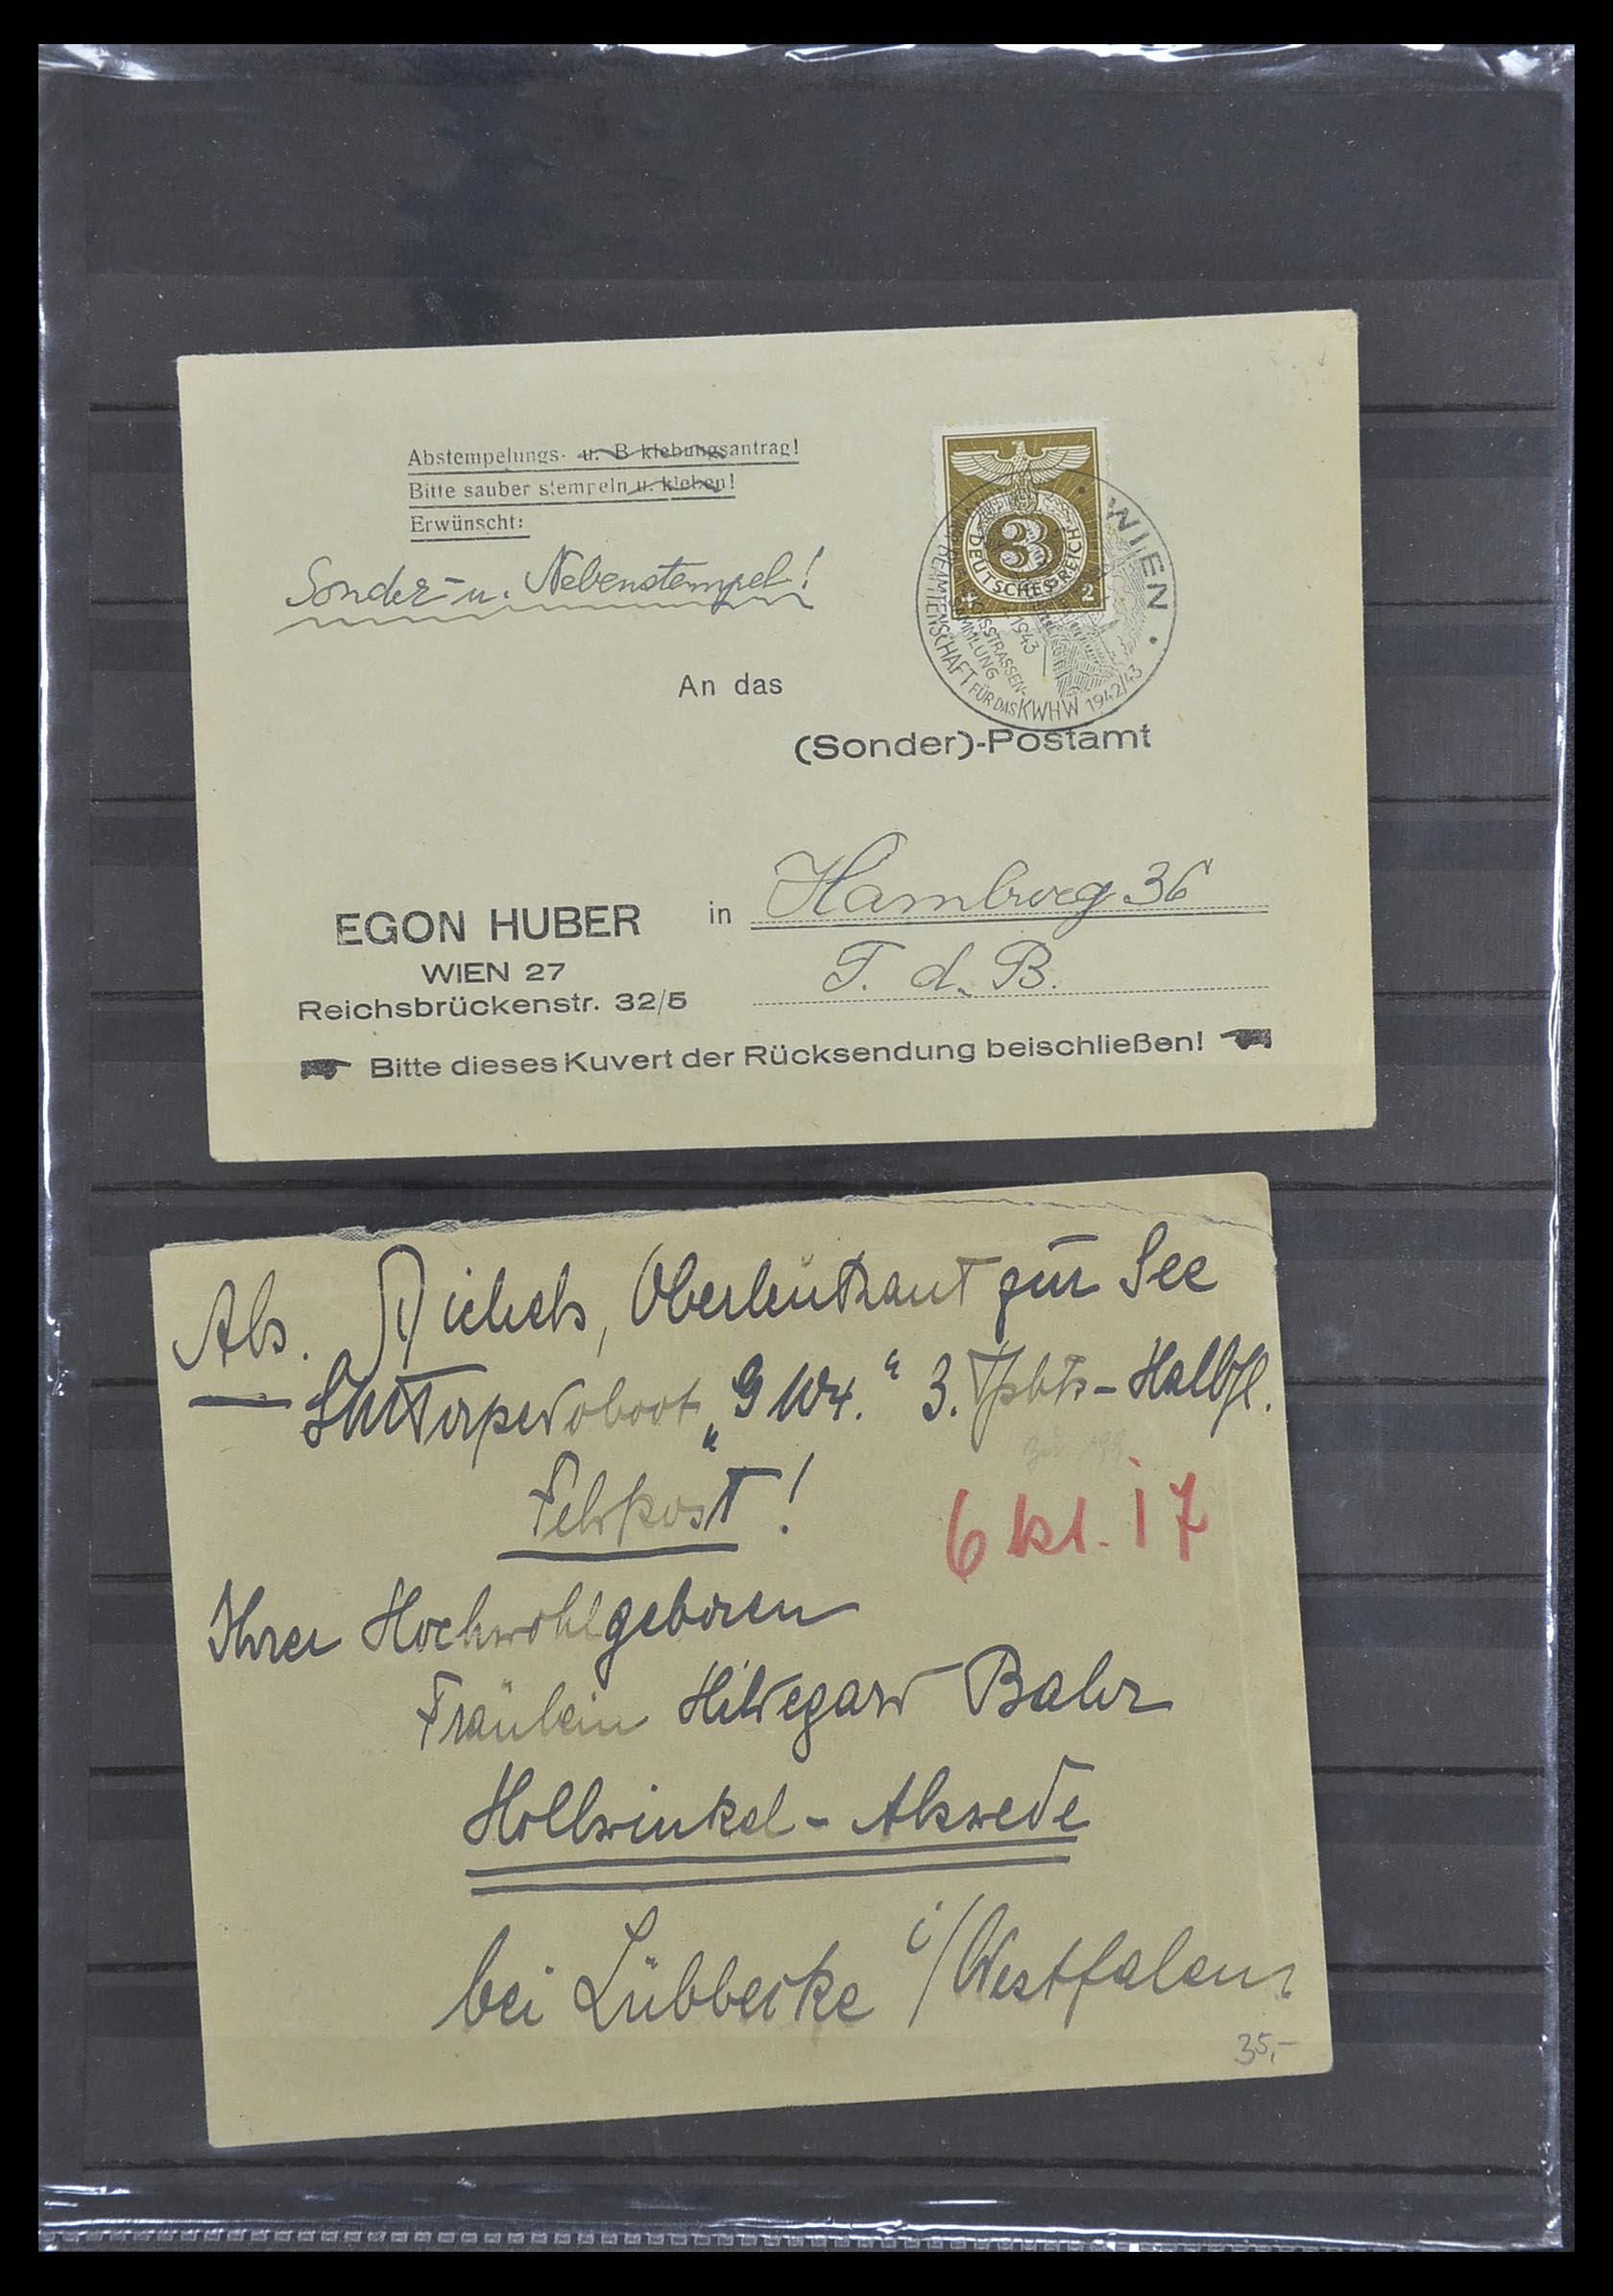 Abstempelungs- u. B klebungsantrag!
Bitte sauber stempeln u. kleben!
Erwünscht:
Sonder- u. Nebenstempel!
DEUTSCHES REICH
3
+ 2
WIEN
1943
BEAMTENSCHAFT FÜR DAS KWHW 1942/43
An das
(Sonder)-Postamt
EGON HUBER
WIEN 27
Reichsbrückenstr. 32/5
in Hamburg 36
T. d. B.
Bitte dieses Kuvert der Rücksendung beischließen!
Abs. Oberleutnant zur See
3. Halbfl.
Feldpost!
6 kl. 17
Ihrer Hochwohlgeboren
Fräulein Hildegard Bahr
Hollwinkel - Alswede
bei Lübbecke i/Westfalen
35,-